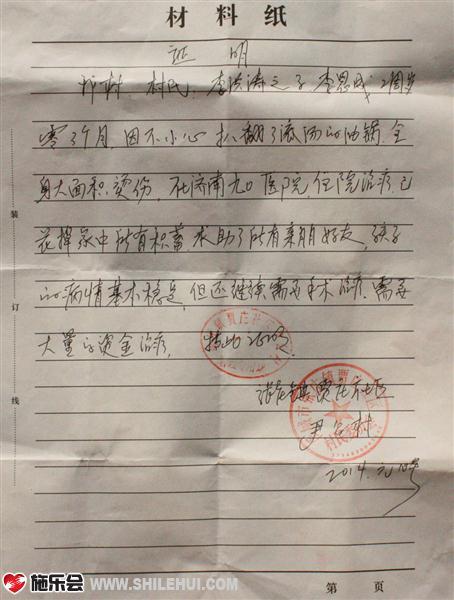 材料纸
证明
村 村民 李洪涛之子李恩成 2周岁
零3个月,因不小心扒翻了滚汤的油锅,全
身大面积烫伤,在济南九〇医院住院治疗,已
花掉家中所有积蓄,求助了所有亲朋好友,孩子
的病情基本稳定,但还继续需要手术治疗,需要
大量的资金治疗,特此证明
贾庄社区
尹 村
2014.元
装
订
线
第 页
施乐会 WWW.SHILEHUI.COM